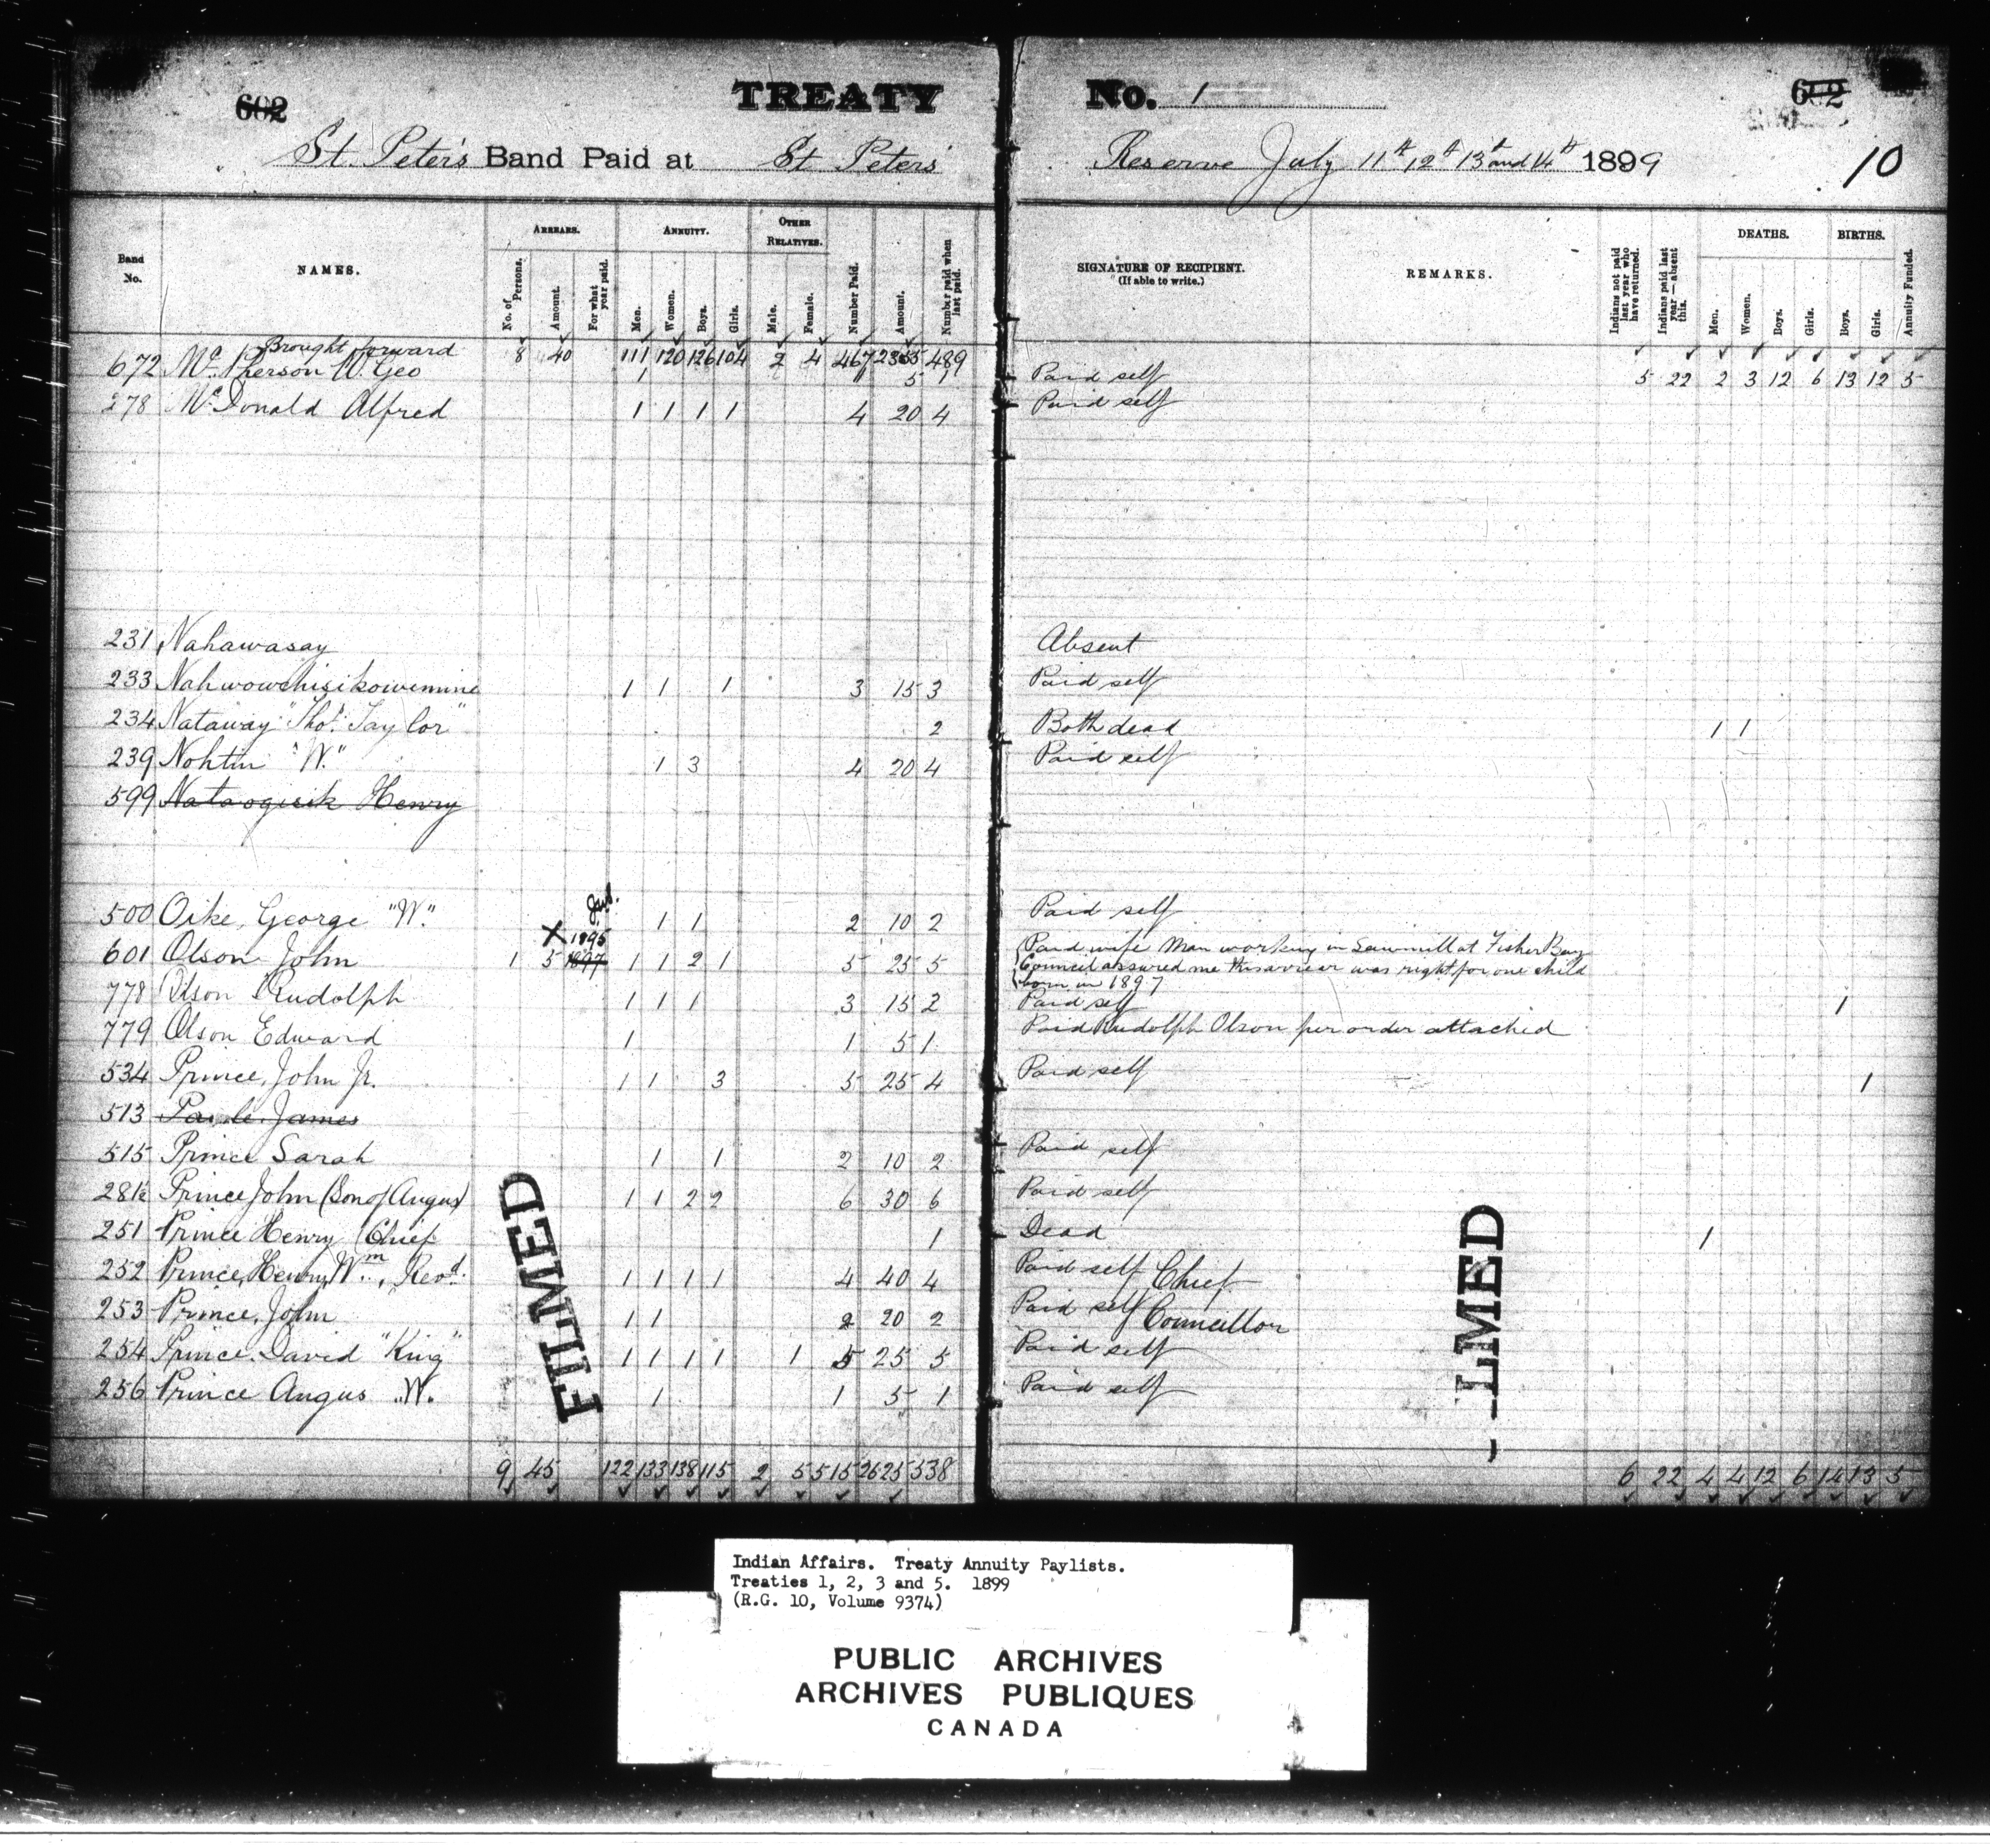 602 TREATY No. 1 602
St. Peter's Band Paid at St Peters' Reserve July 11th 12th 13th and 14th 1899 10
Band No. NAMES. ARREARS. ANNUITY. OTHER RELATIVES.
No. of Persons. Amount. For what year paid. Men. Women. Boys. Girls. Male. Female. Number Paid. Amount. Number paid when last paid.
SIGNATURE OF RECIPIENT. (If able to write.) REMARKS. Indians not paid last year who have returned. Indians paid last year—absent this. DEATHS. Men. Women. Boys. Girls. BIRTHS. Boys. Girls. Annuity Funded.
Brought forward 8 40 111 120 126 104 2 4 467 489 5 22 2 3 12 6 13 12 5
672 McPherson W. Geo 1 1 5 1 Paid self
278 McDonald Alfred 1 1 1 1 4 20 4 Paid self
231 Nahawasay Absent
233 Nahwowchisikowemine 1 1 1 3 15 3 Paid self
234 Nataway "Thos. Taylor" 2 Both dead 1 1
239 Nohtin "W." 1 3 4 20 4 Paid self
599 Nataogisik Henry
500 Oike, George "W." 1 1 2 10 2 Paid self
X 1895
601 Olson John 1 5 1897 1 1 2 1 5 25 5 Paid wife Man working in Sawmill at Fisher Bay
Council assured me this arrear was right for one child
born in 1897
778 Olson Rudolph 1 1 1 3 15 2 Paid self 1
779 Olson Edward 1 1 5 1 Paid Rudolph Olson per order attached
534 Prince, John Jr. 1 1 3 5 25 4 Paid self 1
513 James
515 Prince Sarah 1 1 2 10 2 Paid self
28½ Prince John (Son of Angus) 1 1 2 2 6 30 6 Paid self
251 Prince Henry Chief 1 Dead 1
252 Prince, Henry Wm., Revd. 1 1 1 1 4 40 4 Paid self Chief
253 Prince, John 1 1 2 20 2 Paid self Councillor
254 Prince, David "King" 1 1 1 1 1 5 25 5 Paid self
256 Prince Angus "W." 1 1 5 1 Paid self
9 45 122 133 138 115 2 5 515 2625 538 6 22 4 4 12 6 14 13 5
FILMED
LMED
Indian Affairs. Treaty Annuity Paylists.
Treaties 1, 2, 3 and 5. 1899
(R.G. 10, Volume 9374)
PUBLIC ARCHIVES
ARCHIVES PUBLIQUES
CANADA